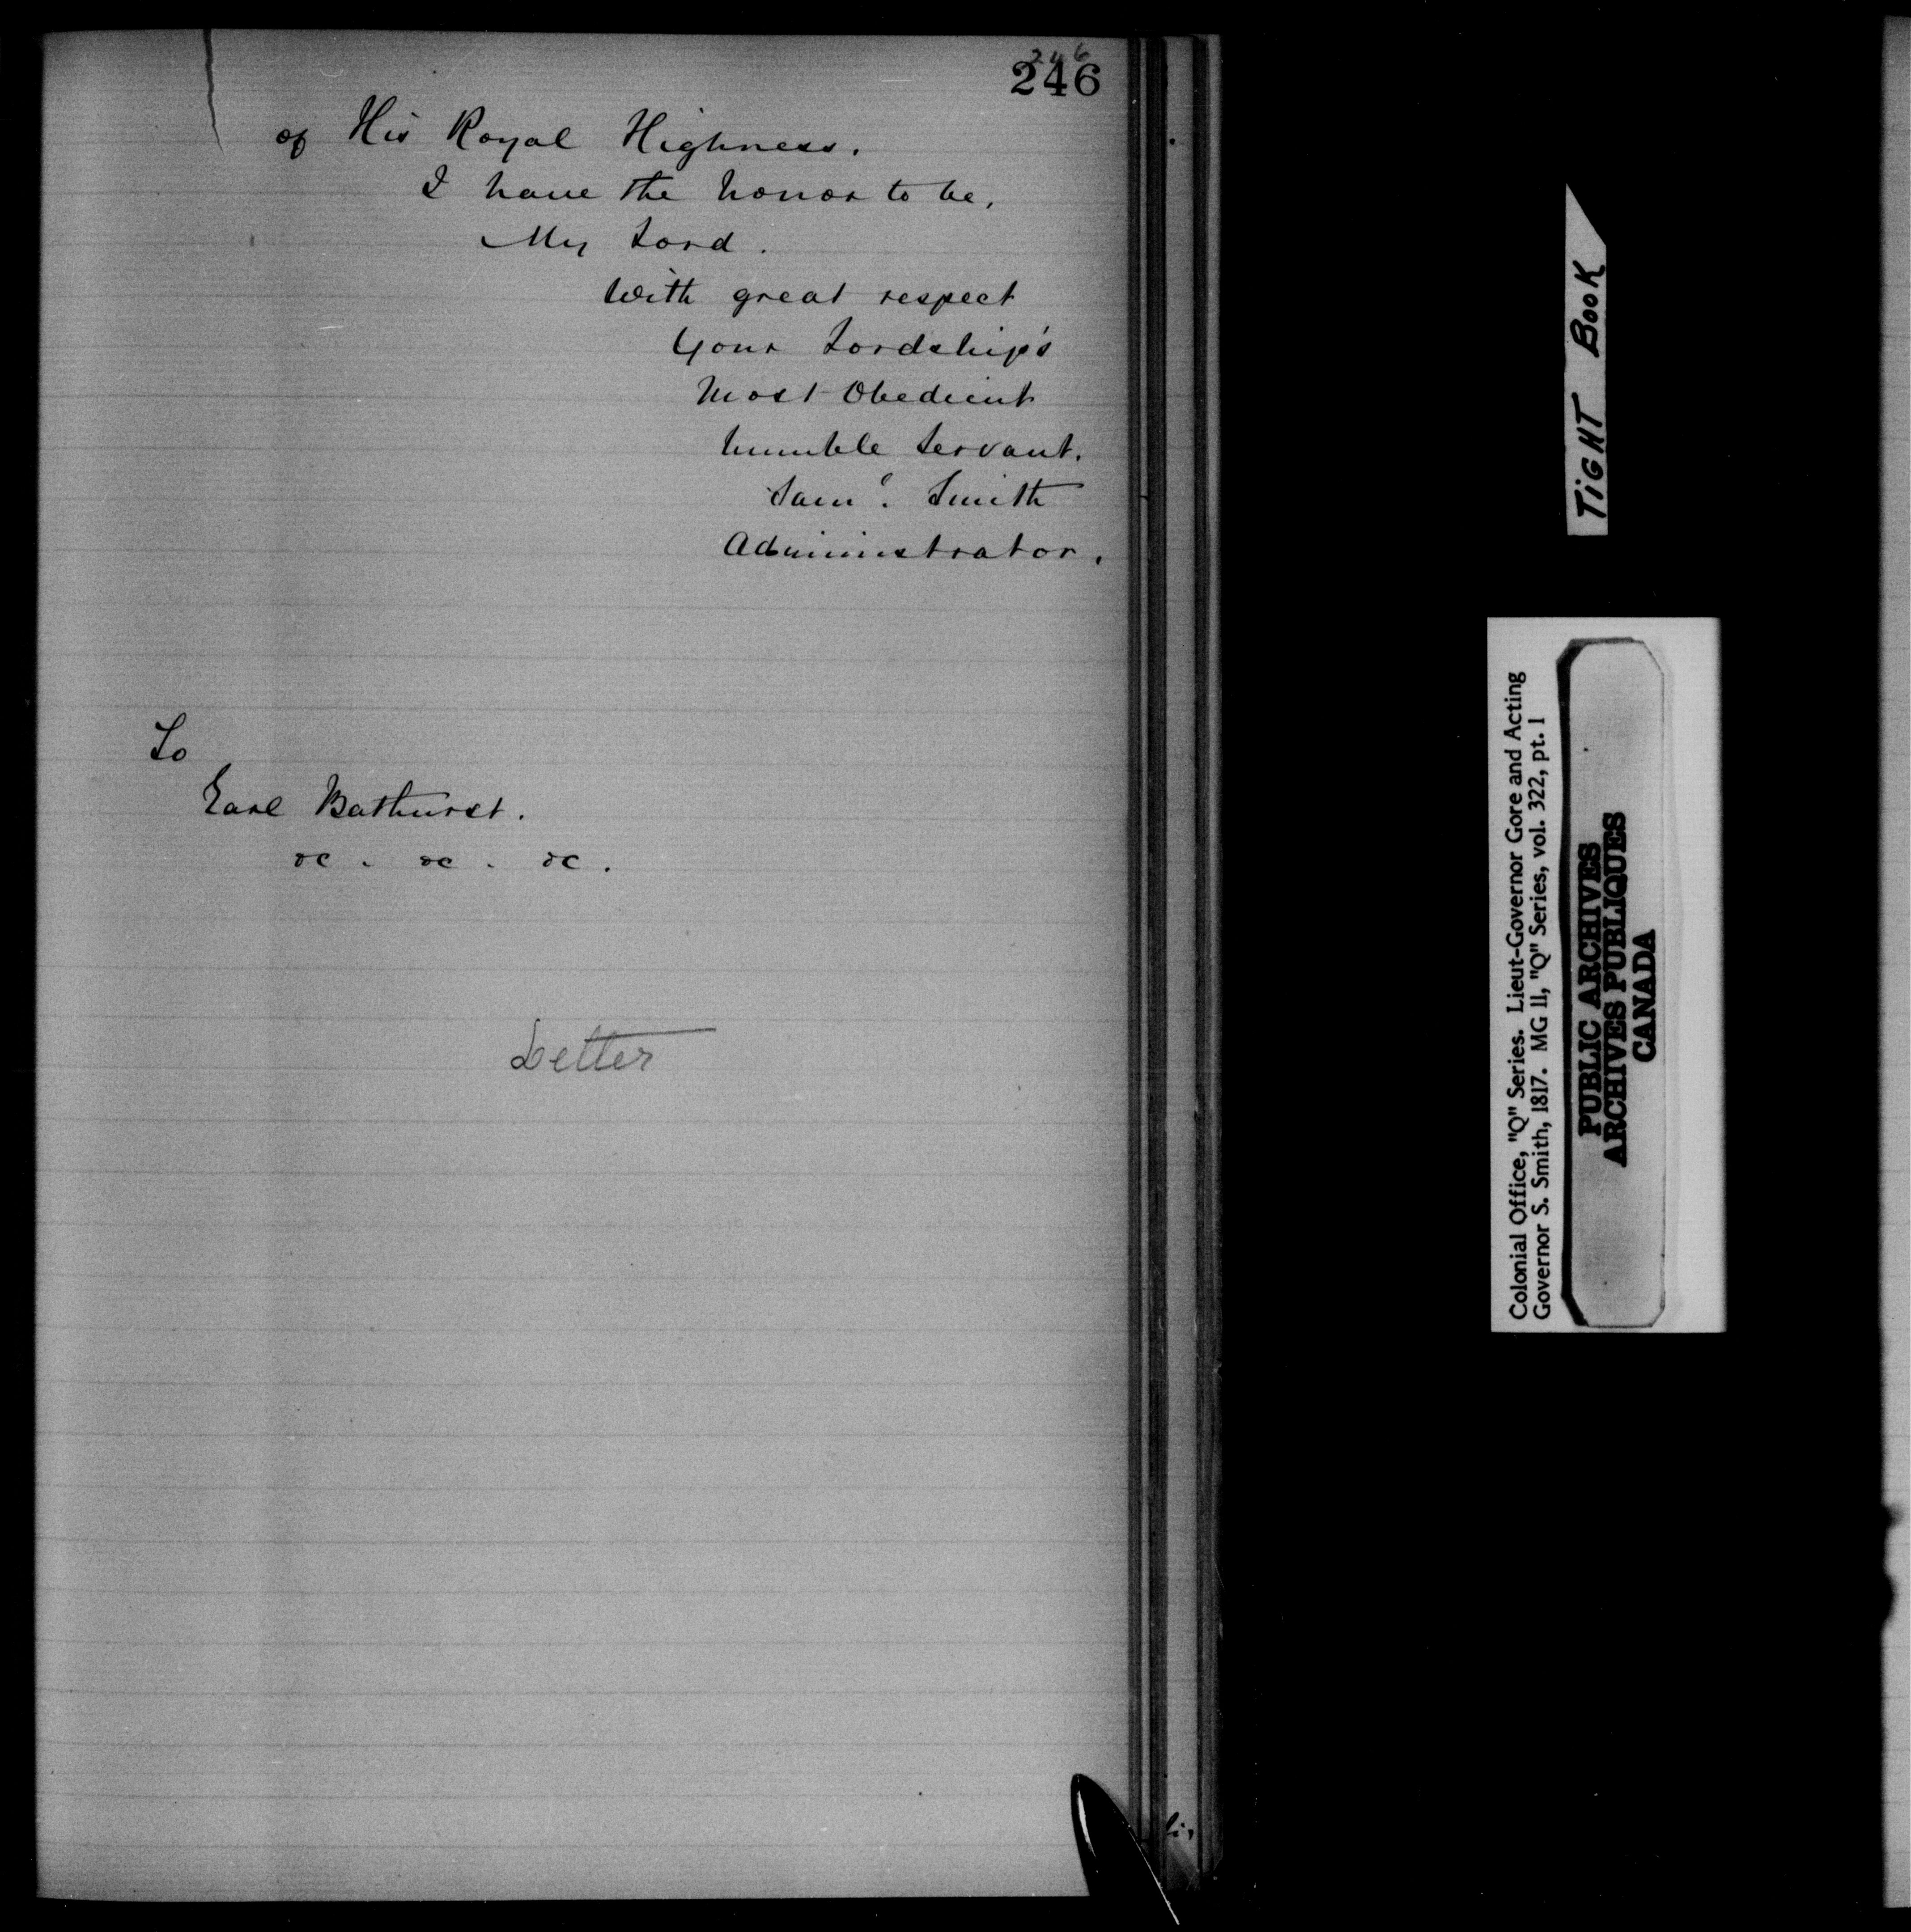 246
246
of His Royal Highness.
I have the honor to be,
My Lord.
With great respect
Your Lordship's
Most Obedient
humble Servant.
Saml. Smith
Administrator.
To
Earl Bathurst.
&c. &c. &c.
Letter
TIGHT BOOK
Colonial Office, "Q" Series. Lieut-Governor Gore and Acting
Governor S. Smith, 1817. MG 11, "Q" Series, vol. 322, pt. 1
PUBLIC ARCHIVES
ARCHIVES PUBLIQUES
CANADA